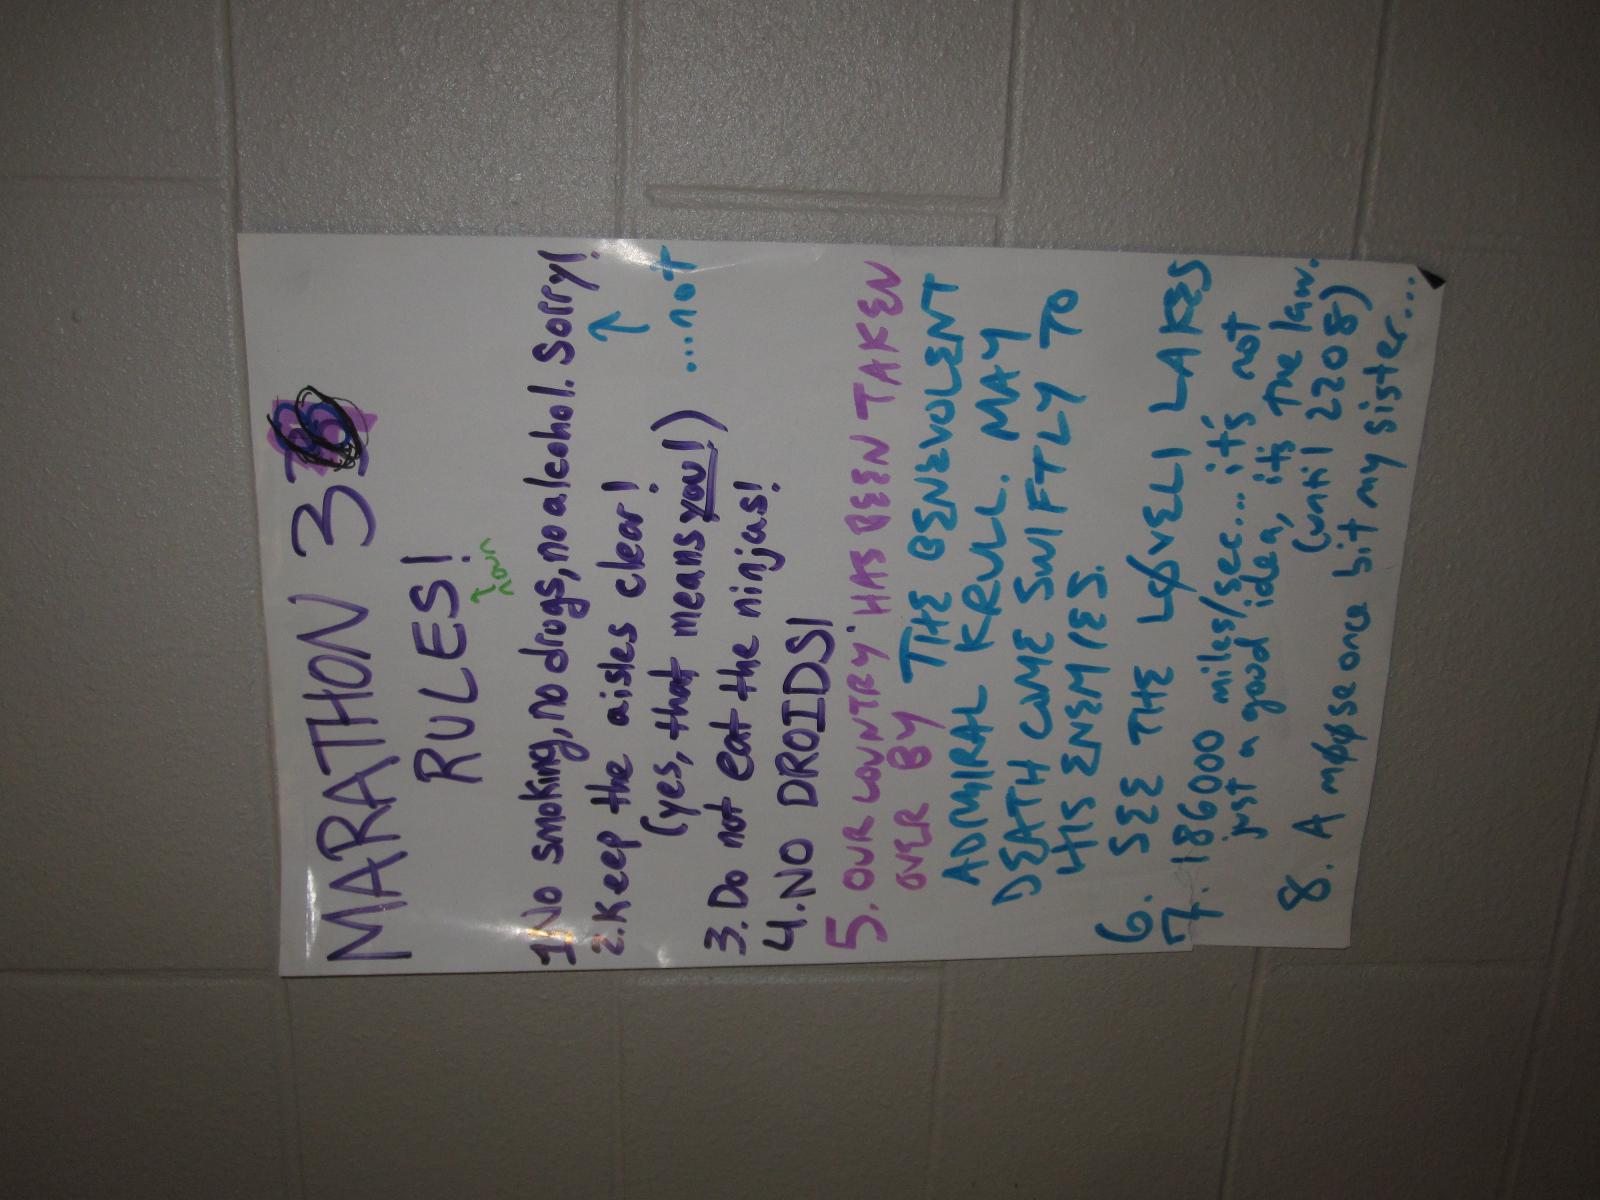 MARATHON 33
RULES!
1. No smoking, no drugs, no alcohol. Sorry!
2. Keep the aisles clear!
(yes, that means you!)
...not
3. Do not eat the ninjas!
4. NO DROIDS!
5. OUR COUNTRY HAS BEEN TAKEN
OVER BY THE BENEVOLENT
ADMIRAL KRULL. MAY
DEATH COME SWIFTLY TO
HIS ENEMIES.
6. SEE THE LØVELI LAKES
7. 186000 miles/sec... it's not
just a good idea, it's the law.
(until 2208)
8. A møøse once bit my sister...